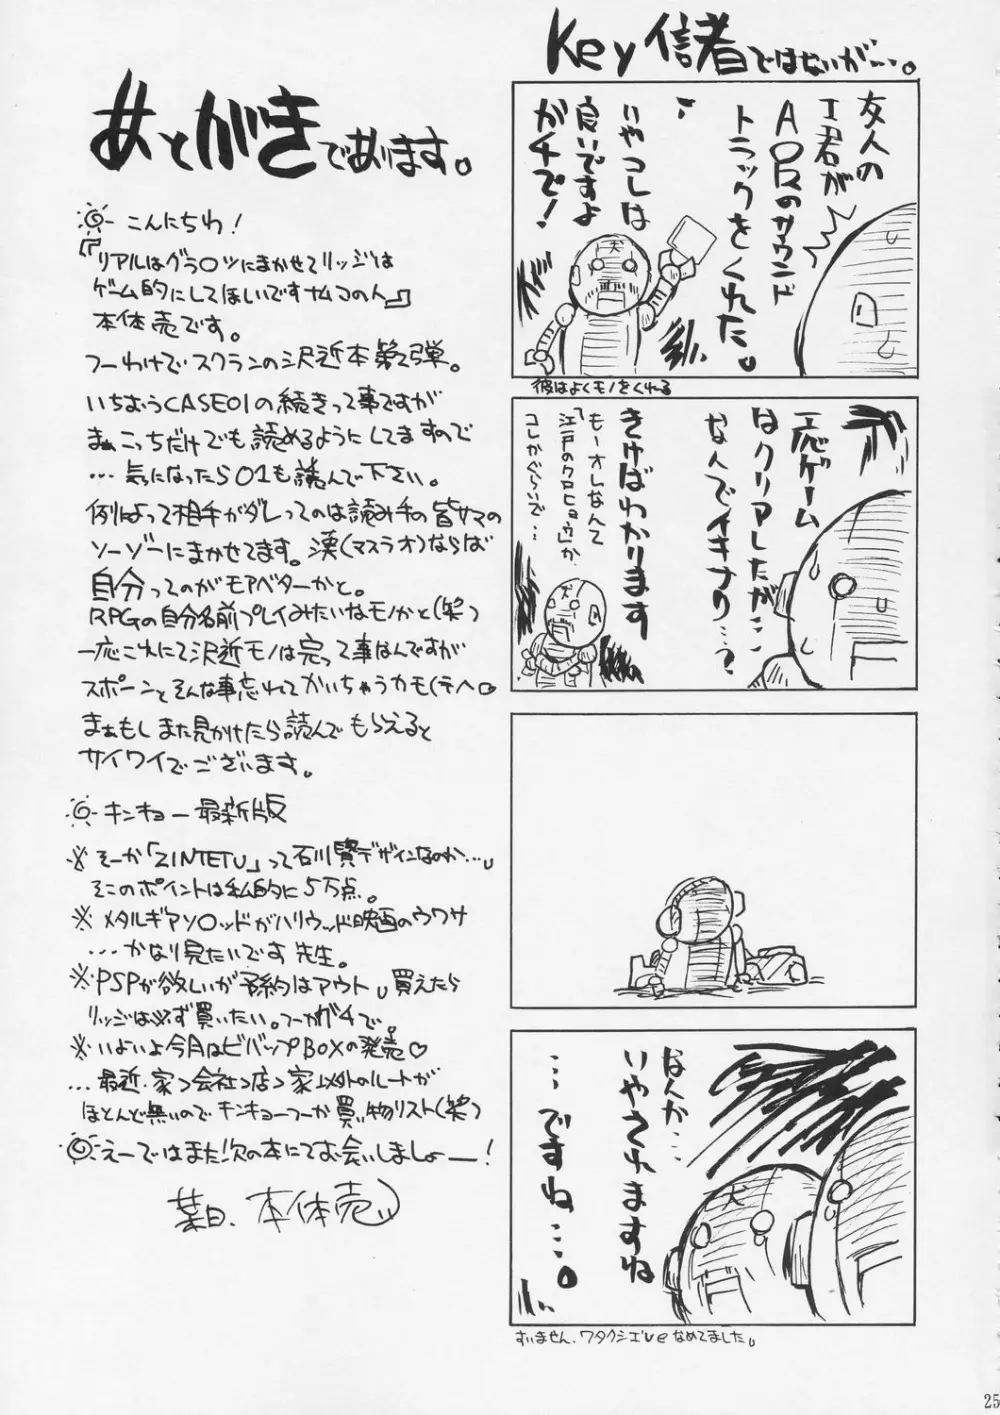 あとがきであります。
こんにちわ!
『リアルはグラ○ツにまかせてリッジは
ゲーム的にしてほしいですナムコの人』
本体売です。
つーわけでスクランの沢近本第2弾。
いちおうCASE01の続きって事ですが
まぁこっちだけでも読めるようにしてますので
…気になったら01も読んで下さい。
例によって相手がダレってのは読み手の皆サマの
ソーゾーにまかせてます。漢(マスラオ)ならば
自分ってのがモアベターかと。
RPGの自分名前プレイみたいなモノかと(笑)
一応これにて沢近モノは完って事なんですが
スポーンとそんな事忘れてかいちゃうカモ(テヘ。
まぁもしまた見かけたら読んでもらえると
サイワイでございます。
キンキョー最新版
※そーか「ZINTETU」って石川賢デザインなのか…。
そこのポイントは私的に5万点。
※メタルギアソ○ッドがハリウッド映画のウワサ
…かなり見たいです先生。
※PSPが欲しいが予約はアウト。買えたら
リッジは必ず買いたい。つーかガチで。
※いよいよ今月はビバップBOXの発売♡
…最近、家>会社>店>家以外のルートが
ほとんど無いのでキンキョーつーか買い物リスト(笑)
えーではまた!次の本にてお会いしましょー!
葉月、本体売
Key信者ではないが…。
友人の
I君が
AIRのサウンド
トラックをくれた。
いやコレは
良いですよ
ガチで!
犬
彼はよくモノをくれる
一応ゲーム
はクリアしたが…
なんでイキナリ…?
きけばわかります
もーオレなんて
「江戸のクロヒョウ」か、
コレかぐらいで…
犬
なんか…
いやされますね
…ですね…。
犬
すいません、ワタクシ正直なめてました。
25